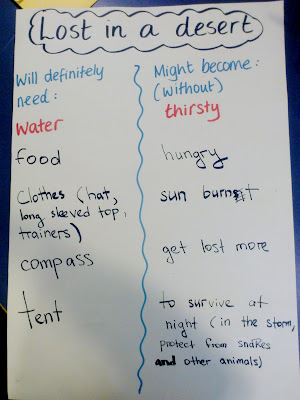 Lost in a desert
Will definitely
need:
water
food
Clothes (hat,
long sleeved top,
trainers)
compass
tent
Might become:
(without)
thirsty
hungry
sun burnt
get lost more
to survive at
night (in the storm,
protect from snakes
and other animals)